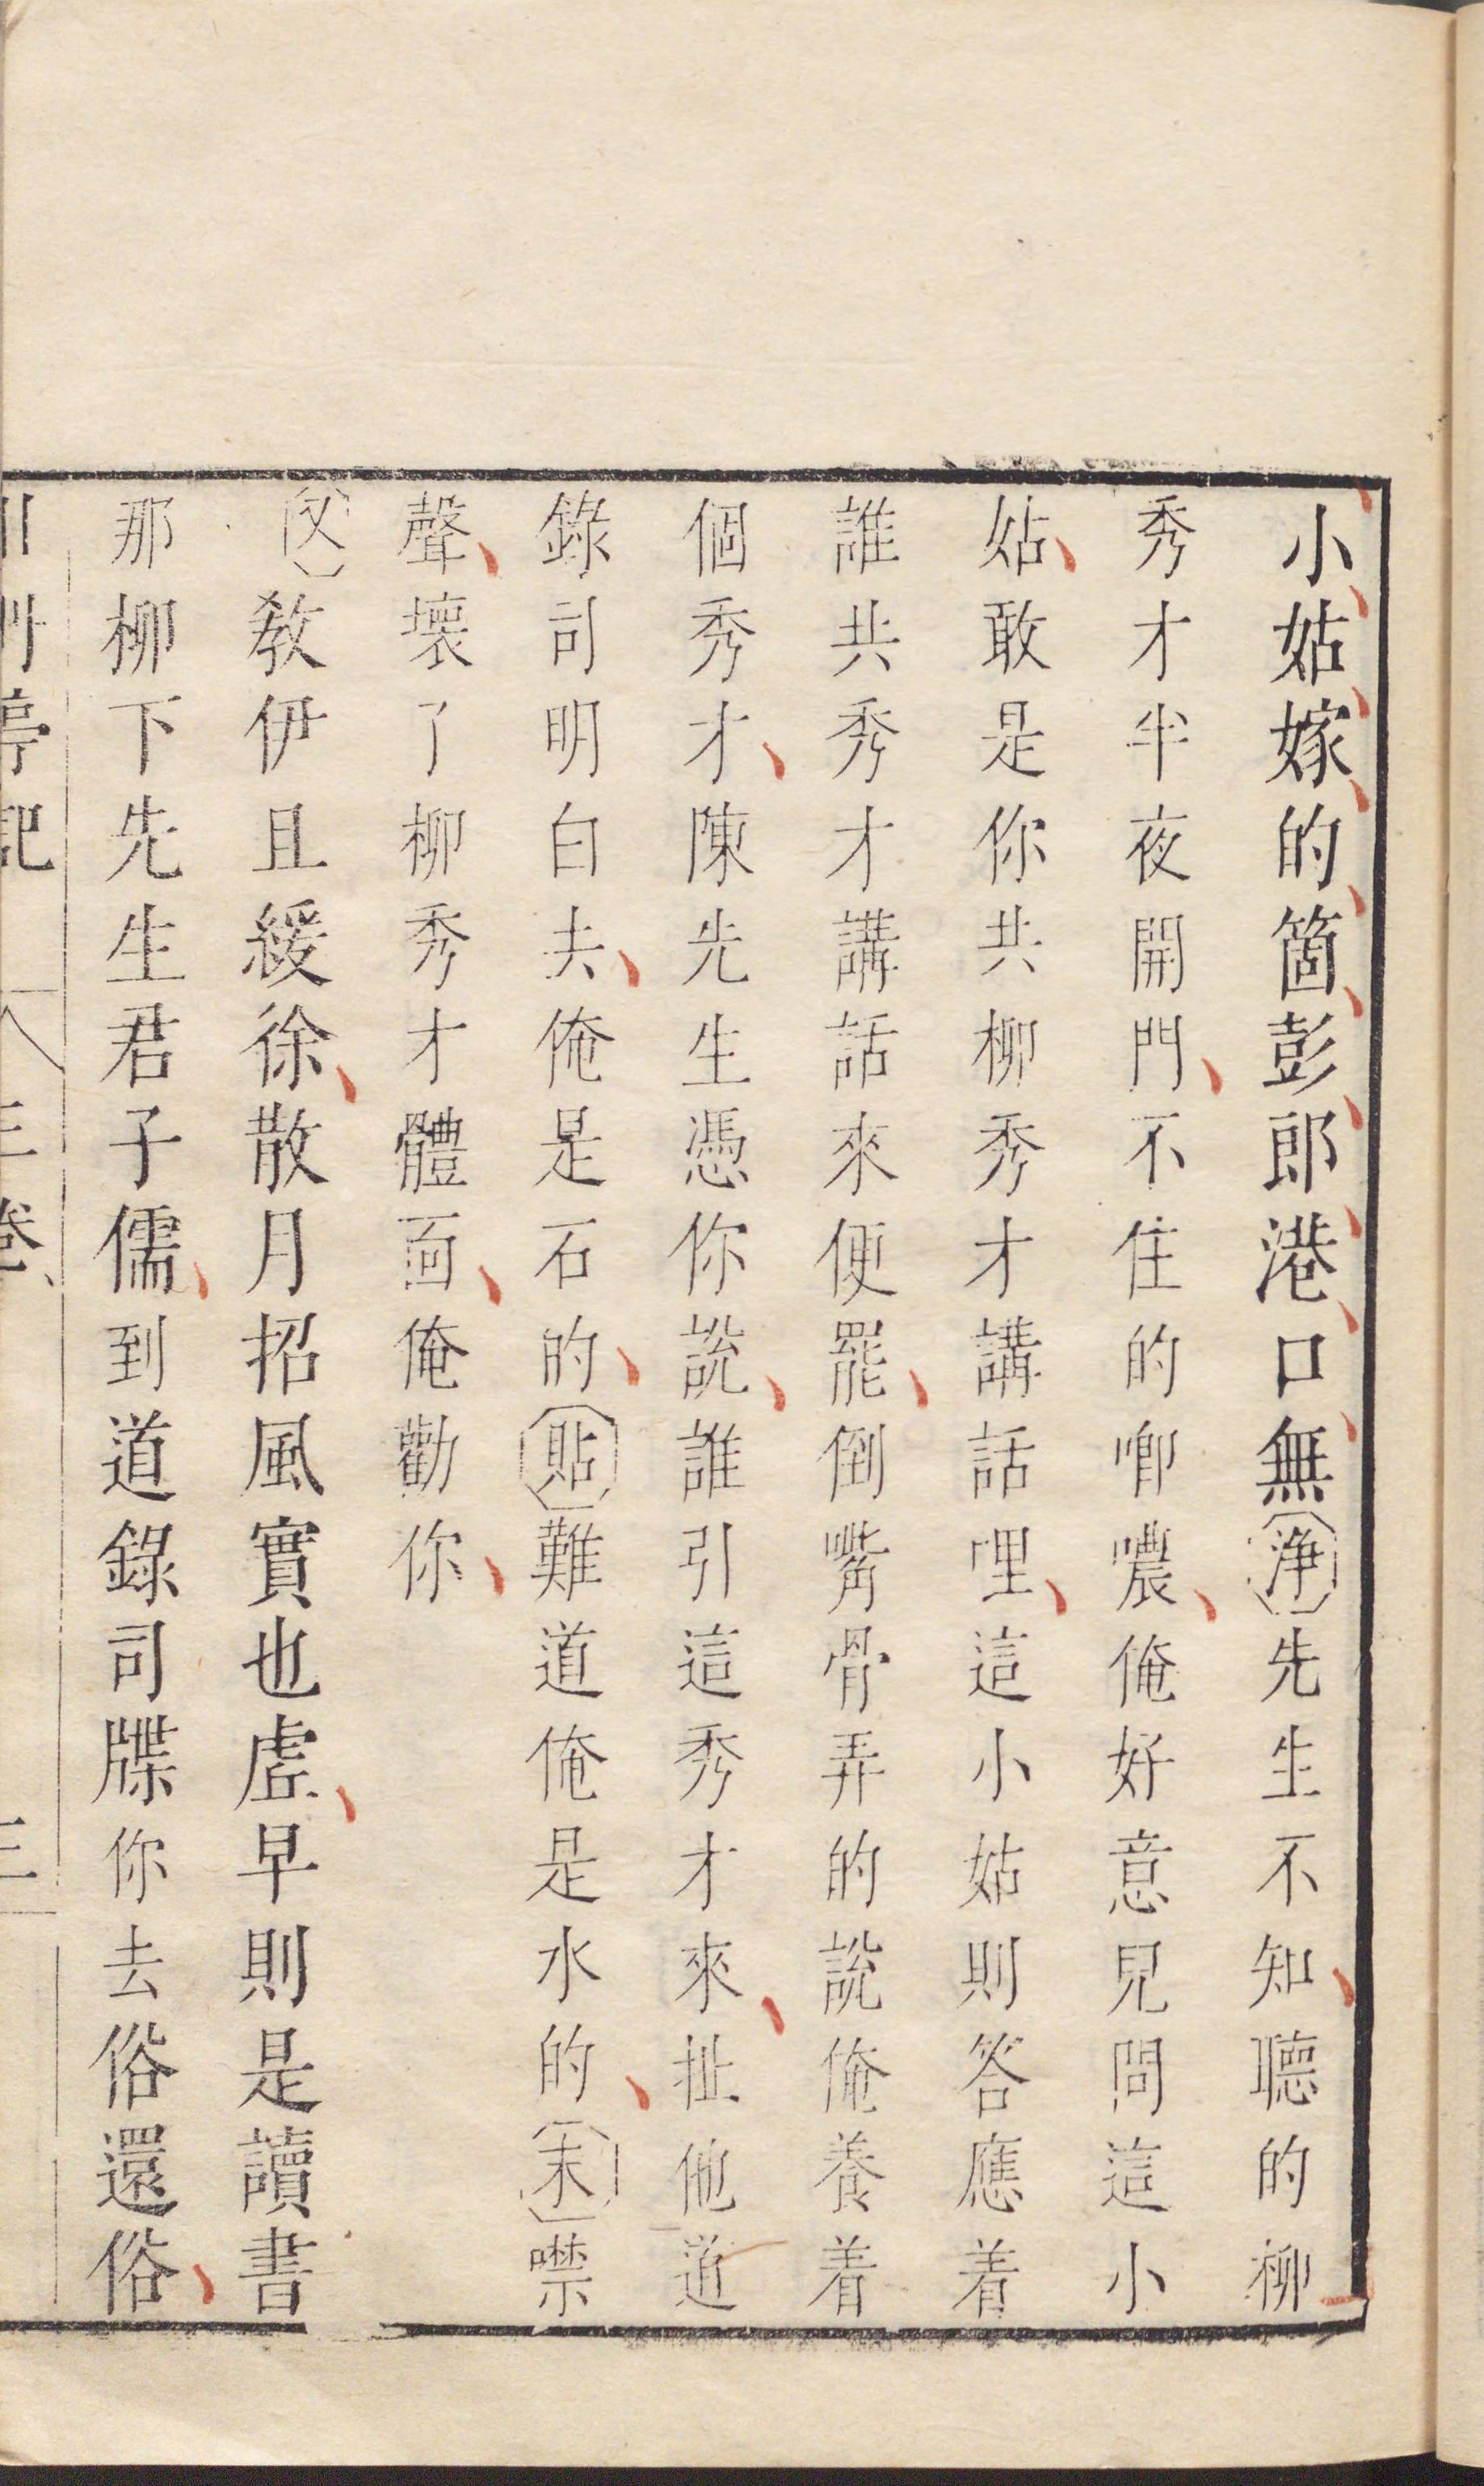 小姑嫁的箇彭郎港口無〔淨〕先生不知聽的柳
秀才半夜開門不住的啣噥俺好意兒問這小
姑敢是你共柳秀才講話哩這小姑則答應着
誰共秀才講話來便罷倒嘴骨弄的說俺養着
個秀才陳先生憑你說誰引這秀才來扯他道
錄司明白去俺是石的〔貼〕難道俺是水的〔末〕噤
聲壞了柳秀才體面俺勸你
〔又〕教伊且緩徐散月招風實也虛早則是讀書
那柳下先生君子儒到道錄司牒你去俗還俗
牡丹亭記 三卷 三